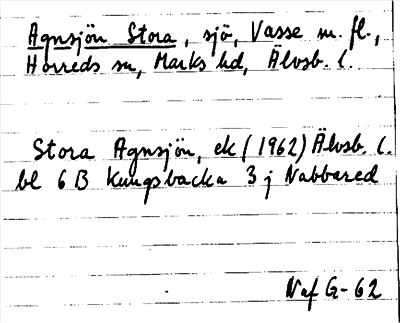 Agnsjön Stora, sjö, Vasse m. fl.,
Horreds sn, Marks hd, Älvsb. l.
Stora Agnsjön, ek (1962) Älvsb. l.
bl 6 B Kungsbacka 3 j Nabbared
Naf G-62